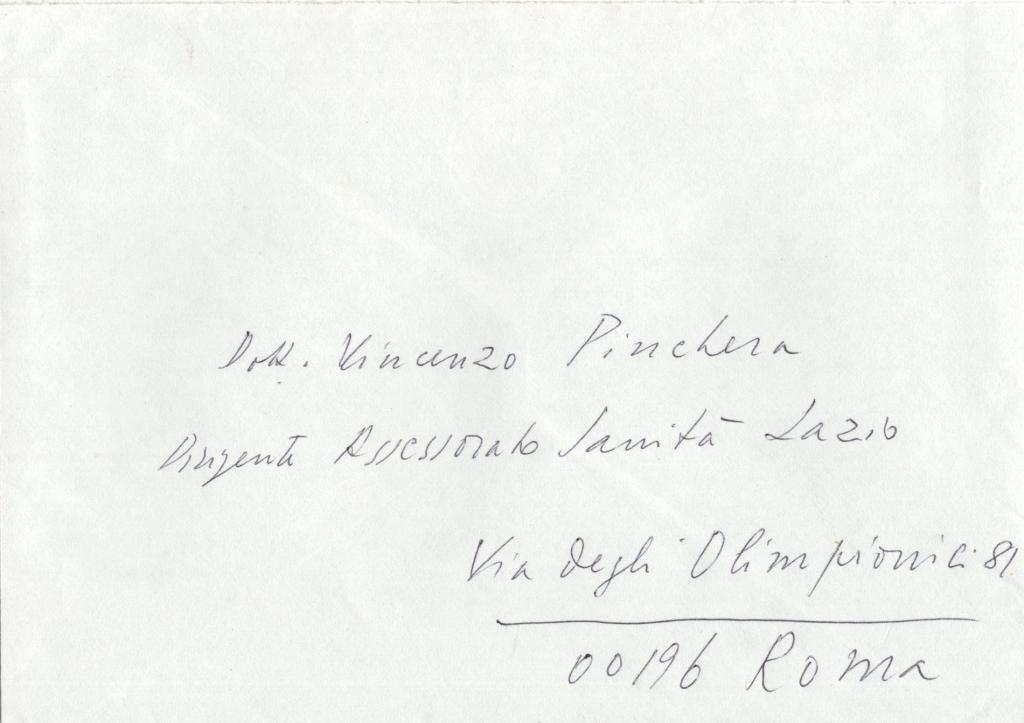 Dott. Vincenzo Pinchera
Dirigente Assessorato Sanità Lazio
Via degli Olimpionici 81
00196 Roma